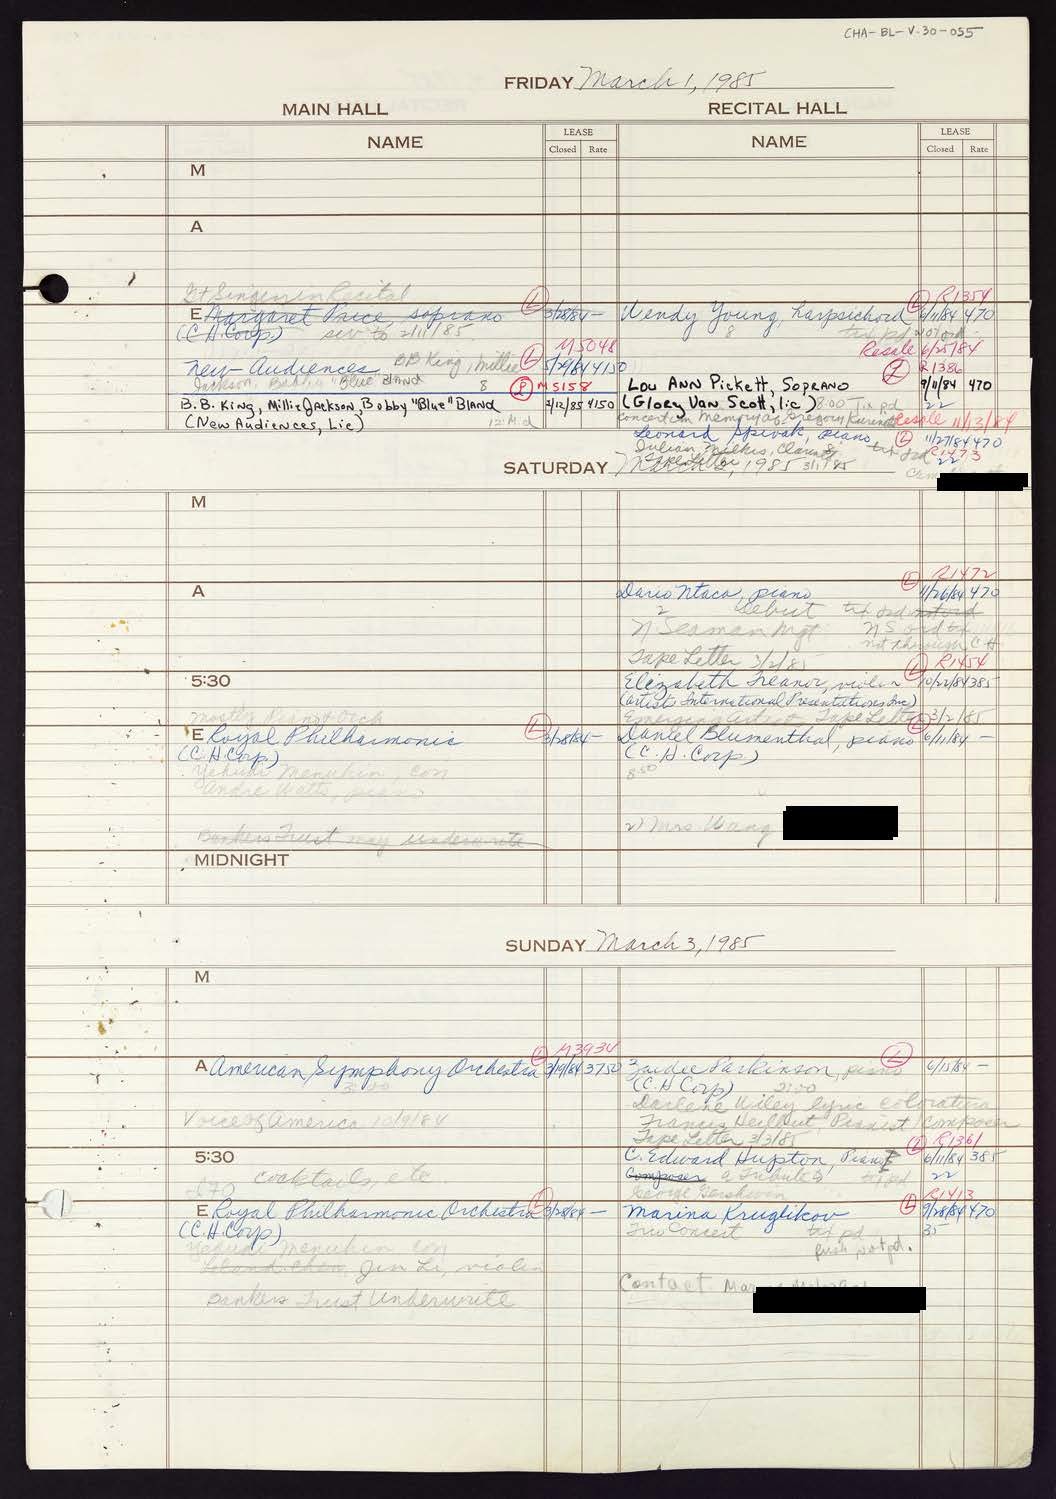 CHA-BL-V-30-055
FRIDAY March 1, 1985
MAIN HALL RECITAL HALL
NAME LEASE Closed Rate NAME LEASE Closed Rate
M
A
Gt Singers in Recital
E Margaret Price, soprano L 3/28/84 —
(C.H. Corp) resv to 2/11/85
M5048
New Audiences BB King, Millie L 5/29/84 4150
Jackson, Bobby "Blue" Bland 8 M5158
B.B. King, Millie Jackson, Bobby "Blue" Bland 2/12/85 4150
(New Audiences, Lic) 12 Mid
L R1354
Wendy Young, harpsichord 6/11/84 470
8 tix pd not ord
Resale 6/25/84
L R1386
Lou Ann Pickett, Soprano 9/11/84 470
(Glory Van Scott, lic) 8:00 Tix pd 22
concert in Memory of Gregory Resale 11/13/84
Leonard Spivak, piano L 11/27/84 470
Julian Milkis, Clarinet 8 tix ord R1473
Tape Letter 3/1/85 22
SATURDAY March 2, 1985
M
L R1472
A Dario Ntaca, piano 11/26/84 470
2 debut tix ord not ord
N Seaman Mgt NS ord tix
not through CH
Tape Letter 3/2/85
L R1454
5:30 Elizabeth Treanor, violin 10/22/84 385
(Artists International Presentations Inc)
Emerging Artist Tape Letter 3/2/85
Mostly Piano & Orch
E Royal Philharmonic L 3/28/84 — Daniel Blumenthal, piano L 6/11/84 —
(C.H. Corp) (C.H. Corp)
Yehudi Menuhin, con 8:00
Andre Watts, piano
Bankers Trust may underwrite
2) Mrs Wang
MIDNIGHT
SUNDAY March 3, 1985
M
L M3934
A American Symphony Orchestra 3/19/84 3750
3:00
Voice of America 10/9/84
Zaidee Parkinson, piano L 6/15/84 —
(C.H Corp) 2:00
Darlene Wiley lyric coloratura
Francis Heilbut, Pianist/Composer
Tape Letter 3/3/85
L R1361
5:30 C. Edward Hupton, Pianist 6/11/84 385
Composer a Tribute to tix pd 22
George Gershwin
cocktails, etc
E Royal Philharmonic Orchestra L 3/28/84 —
(C.H. Corp)
Yehudi Menuhin con
Leland Chen, Jin Li, violin
Bankers Trust Underwrite
L R1413
Marina Kruglikov 9/28/84 470
Trio Concert tix pd 35
push not pd.
Contact